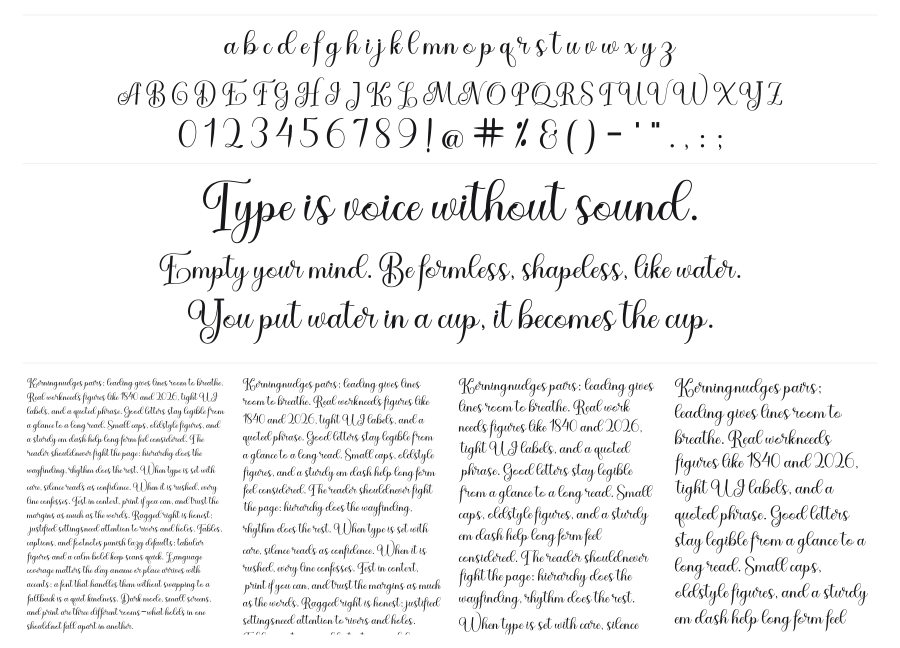 a b c d e f g h i j k l m n o p q r s t u v w x y z
A B C D E F G H I J K L M N O P Q R S T U V W X Y Z
0 1 2 3 4 5 6 7 8 9 ! @ # % & ( ) - ' " . , : ;
Type is voice without sound.
Empty your mind. Be formless, shapeless, like water.
You put water in a cup, it becomes the cup.
Kerning nudges pairs; leading gives lines room to breathe.
Real work needs figures like 1840 and 2026, tight UI
labels, and a quoted phrase. Good letters stay legible from
a glance to a long read. Small caps, oldstyle figures, and
a sturdy em dash help long form feel considered. The
reader should never fight the page; hierarchy does the
wayfinding, rhythm does the rest. When type is set with
care, silence reads as confidence. When it is rushed, every
line confesses. Test in context, print if you can, and trust the
margins as much as the words. Ragged right is honest;
justified settings need attention to rivers and holes. Tables,
captions, and footnotes punish lazy defaults; tabular
figures and a calm bold keep scans quick. Language
coverage matters the day a name or place arrives with
accents; a font that handles them without swapping to a
fallback is a quiet kindness. Dark mode, small screens,
and print are three different rooms—what holds in one
should not fall apart in another.
Kerning nudges pairs; leading gives lines
room to breathe. Real work needs figures like
1840 and 2026, tight UI labels, and a
quoted phrase. Good letters stay legible from
a glance to a long read. Small caps, oldstyle
figures, and a sturdy em dash help long form
feel considered. The reader should never fight
the page; hierarchy does the wayfinding,
rhythm does the rest. When type is set with
care, silence reads as confidence. When it is
rushed, every line confesses. Test in context,
print if you can, and trust the margins as much
as the words. Ragged right is honest; justified
settings need attention to rivers and holes.
Kerning nudges pairs; leading gives
lines room to breathe. Real work
needs figures like 1840 and 2026,
tight UI labels, and a quoted
phrase. Good letters stay legible
from a glance to a long read. Small
caps, oldstyle figures, and a sturdy
em dash help long form feel
considered. The reader should never
fight the page; hierarchy does the
wayfinding, rhythm does the rest.
When type is set with care, silence
Kerning nudges pairs;
leading gives lines room to
breathe. Real work needs
figures like 1840 and 2026,
tight UI labels, and a
quoted phrase. Good letters
stay legible from a glance to a
long read. Small caps,
oldstyle figures, and a sturdy
em dash help long form feel